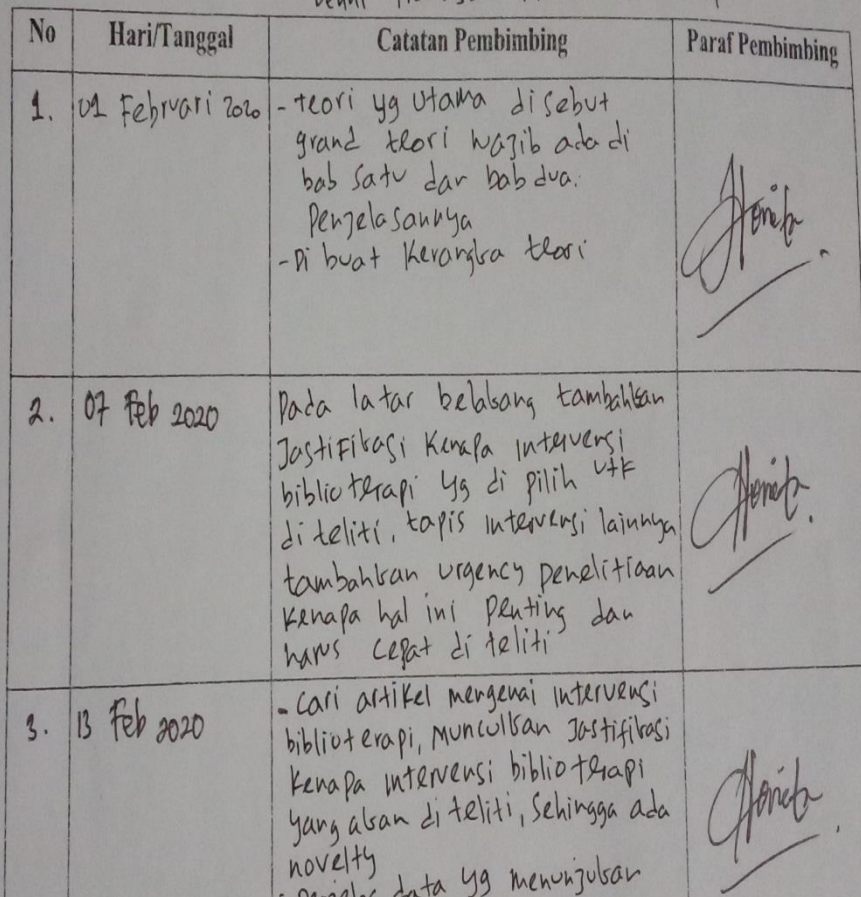 No Hari/Tanggal Catatan Pembimbing Paraf Pembimbing
1. 01 Februari 2020 - teori yg utama disebut
grand teori wajib ada di
bab satu dan bab dua.
Penjelasannya
- Di buat Kerangka teori
2. 07 Feb 2020 Pada latar belakang tambahkan
Jastifikasi Kenapa intervensi
biblioterapi yg di pilih utk
di teliti, tapis intervensi lainnya
tambahkan urgency penelitiaan
Kenapa hal ini penting dan
harus cepat di teliti
3. 13 Feb 2020 - Cari artikel mengenai intervensi
biblioterapi, Munculkan Jastifikasi
Kenapa intervensi biblioterapi
yang akan di teliti, Sehingga ada
novelty
data yg menunjukan